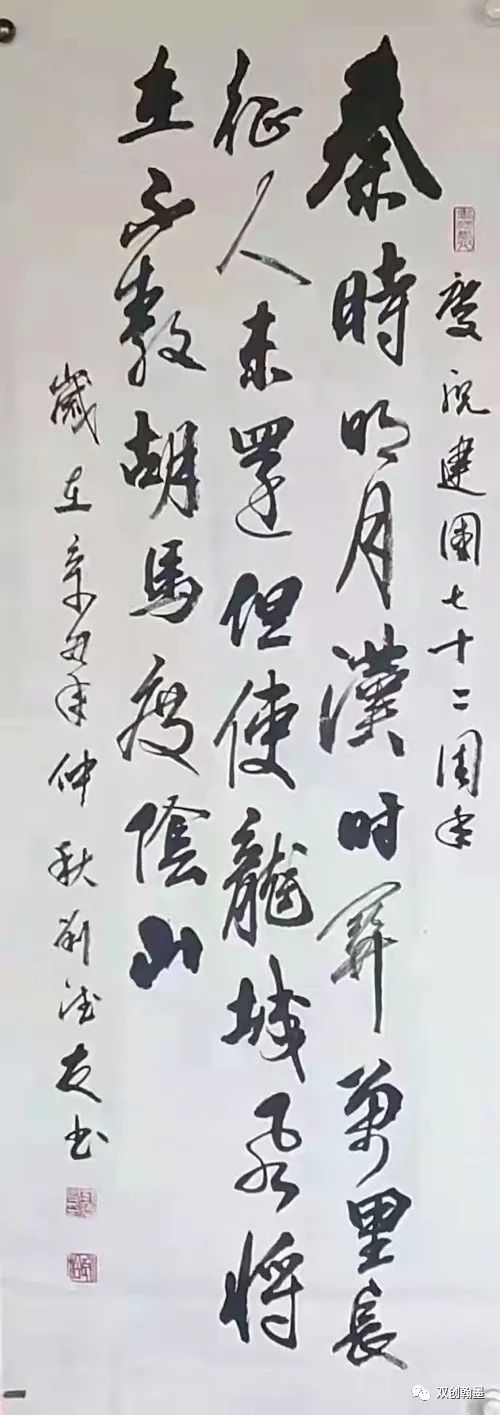 慶祝建國七十二周年
秦時明月漢时關萬里長
征人未還但使龍城飛將
在不教胡馬度陰山
歲在辛丑年仲秋劉友书
双创翰墨